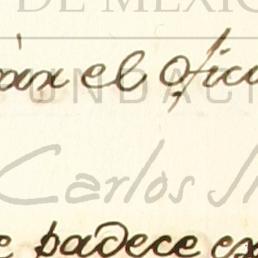 DE MÉXIC
el ofici
FUNDACI
Carlos Sl
padece ex